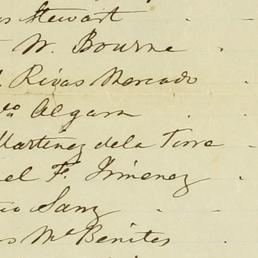 s Stewart
W. Bourne
Rivas Mercado
Algara
Martinez de la Torre
el F. Jimenez
io Sanz
os Ma Benites